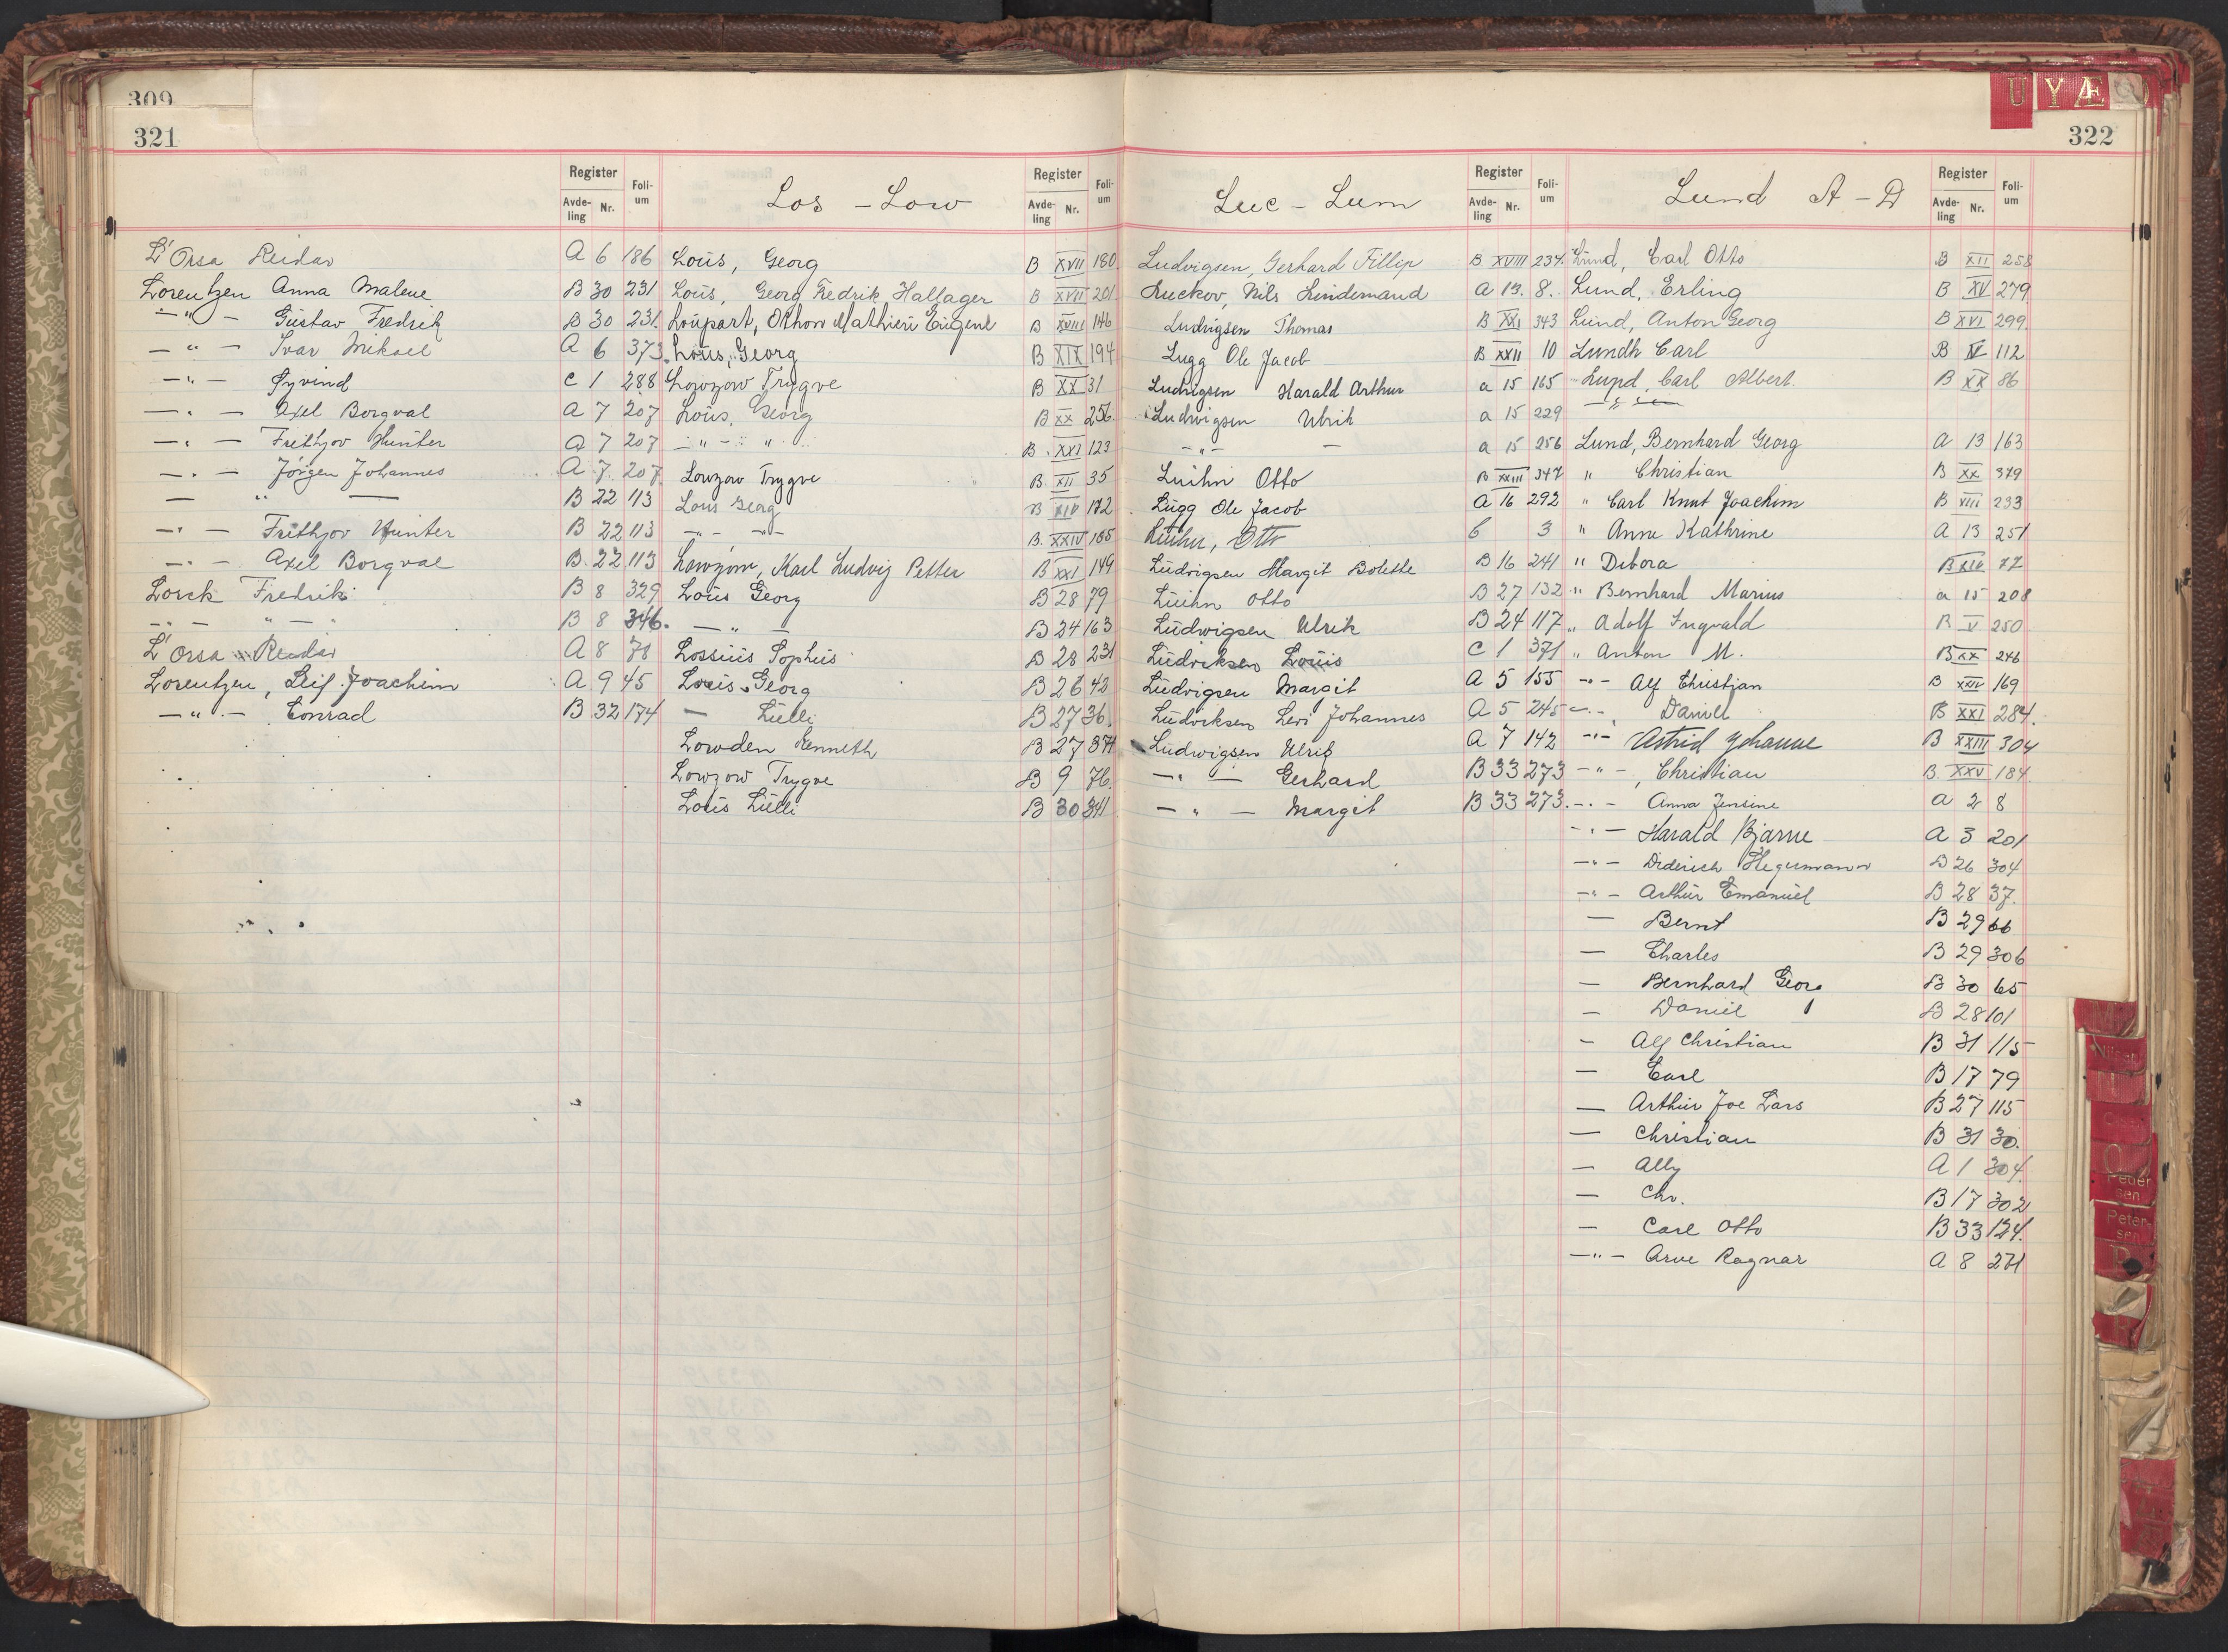 309
321
Register
Foli-
um
Avde-
ling
Nr.
L'Orsa Reidar A 6 186
Lorentzen Anna Malene B 30 231
— " — Gustav Fredrik B 30 231
— " — Ivar Mikael A 6 373
— " — Øyvind C 1 288
— " — Axel Borgval A 7 207
— " — Frithjov Hunter A 7 207
— " — Jörgen Johannes A 7 207
— " — B 22 113
— " — Frithjov Hunter B 22 113
— " — Axel Borgval B 22 113
Lorck Fredrik B 8 329
— " — " — " B 8 346.
L'Orsa Reidar A 8 78
Lorentzen, Leif Joachim A 9 45
— " — Conrad B 32 174
Los - Low
Register
Foli-
um
Avde-
ling
Nr.
Loüs, Georg B XVII 180
Loüs, Georg Fredrik Hallager B XVII 201
Loupart, Othon Mathieu Eugene B XVIII 146
Loüs, Georg B XIX 194
Lowzow Trygve B XX 31
Loüs, Georg B XX 256
— " — " B XXI 123
Lowzow Trygve B XII 35
Lous Georg B XIV 172
— " — — " — B XXIV 185
Lowzow, Karl Ludvig Petter B XXI 149
Loüs Georg B 28 79
— " — B 24 163
Lossius Sophus B 28 231
Louis Georg B 26 42
— Lülli B 27 36
Lowden Kenneth B 27 371
Lowzow Trygve B 9 76
Louis Lülli B 30 341
322
U Y Æ
Luc - Lum
Register
Foli-
um
Avde-
ling
Nr.
Ludvigsen, Gerhard Fillip B XVIII 234
Luckov, Nils Lindemand A 13 8.
Ludvigsen Thomas B XXI 343
Lugg Ole Jacob B XXII 10
Ludvigsen Harald Arthur a 15 165
Ludwigsen Ulrik a 15 229
— " — — a 15 256
Luihn Otto B XXIII 347
Lugg Ole Jacob A 16 292
Luihn, Otto 6 3
Ludvigsen Margit Bolette B 16 241
Luihn Otto B 27 132
Ludwigsen Ulrik B 24 117
Ludviksen Louis C 1 371
Ludvigsen Margit A 5 155
Ludviksen Levi Johannes A 5 245
Ludwigsen Ulrik A 7 142
— " — Gerhard B 33 273
— " — Margit B 33 273.
Lund A - D
Register
Foli-
um
Avde-
ling
Nr.
Lund, Carl Otto B XII 258
Lund, Erling B XV 279
Lund, Anton Georg B XVI 299
Lundh Carl B V 112
Lund, Carl Albert. B XX 86
Lund, Bernhard Georg A 13 163
" Christian B XX 379
" Carl Knut Joachim B VIII 233
" Anne Kathrine A 13 251
" Debora B XIV 77
" Bernhard Marius a 15 208
" Adolf Ingvald B V 250
" Anton M. B XX 246
— " — Alf Christian B XXIV 169
— " — Daniel B XXI 284.
— " — Astrid Johanne B XXIII 304
— " — , Christian B. XXV 184
— " — Anna Jensine a 2 8
— " — Harald Bjarne A 3 201
— " — Diderich Hegermann B 26 304
— " — Arthur Emanuel B 28 37.
— Bernt B 29 66
— Charles B 29 306
— Bernhard Georg B 30 65
— Daniel B 28 101
— Alf Christian B 31 115
— Carl B 17 79
— Arthur Joe Lars B 27 115
— Christian B 31 30.
— Ally A 1 304
— Chr. B 17 302
— Carl Otto B 33 124.
— " — Arve Ragnar A 8 271
Nilsen
Peder
sen
Peter-
sen